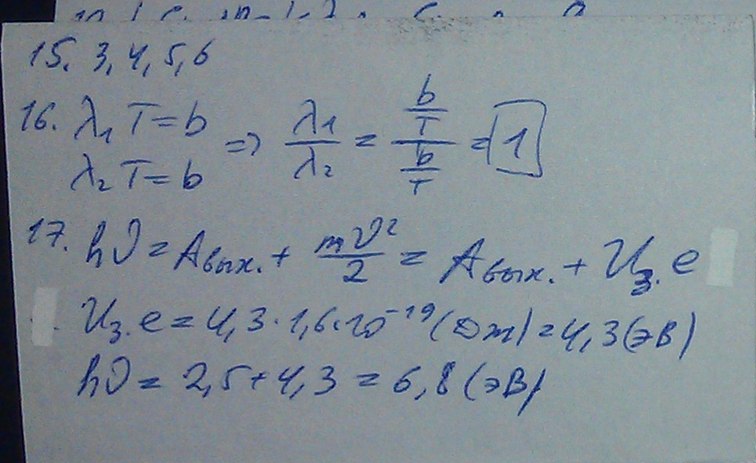 15. 3, 4, 5, 6
16. λ₁ T = b
λ₂ T = b
=> λ₁/λ₂ = (b/T)/(b/T) = 1
17. hν = Aвых. + mv²/2 = Aвых. + Uз. e
Uз. e = 4,3 · 1,6 · 10⁻¹⁹ (Дж) = 4,3 (эВ)
hν = 2,5 + 4,3 = 6,8 (эВ)